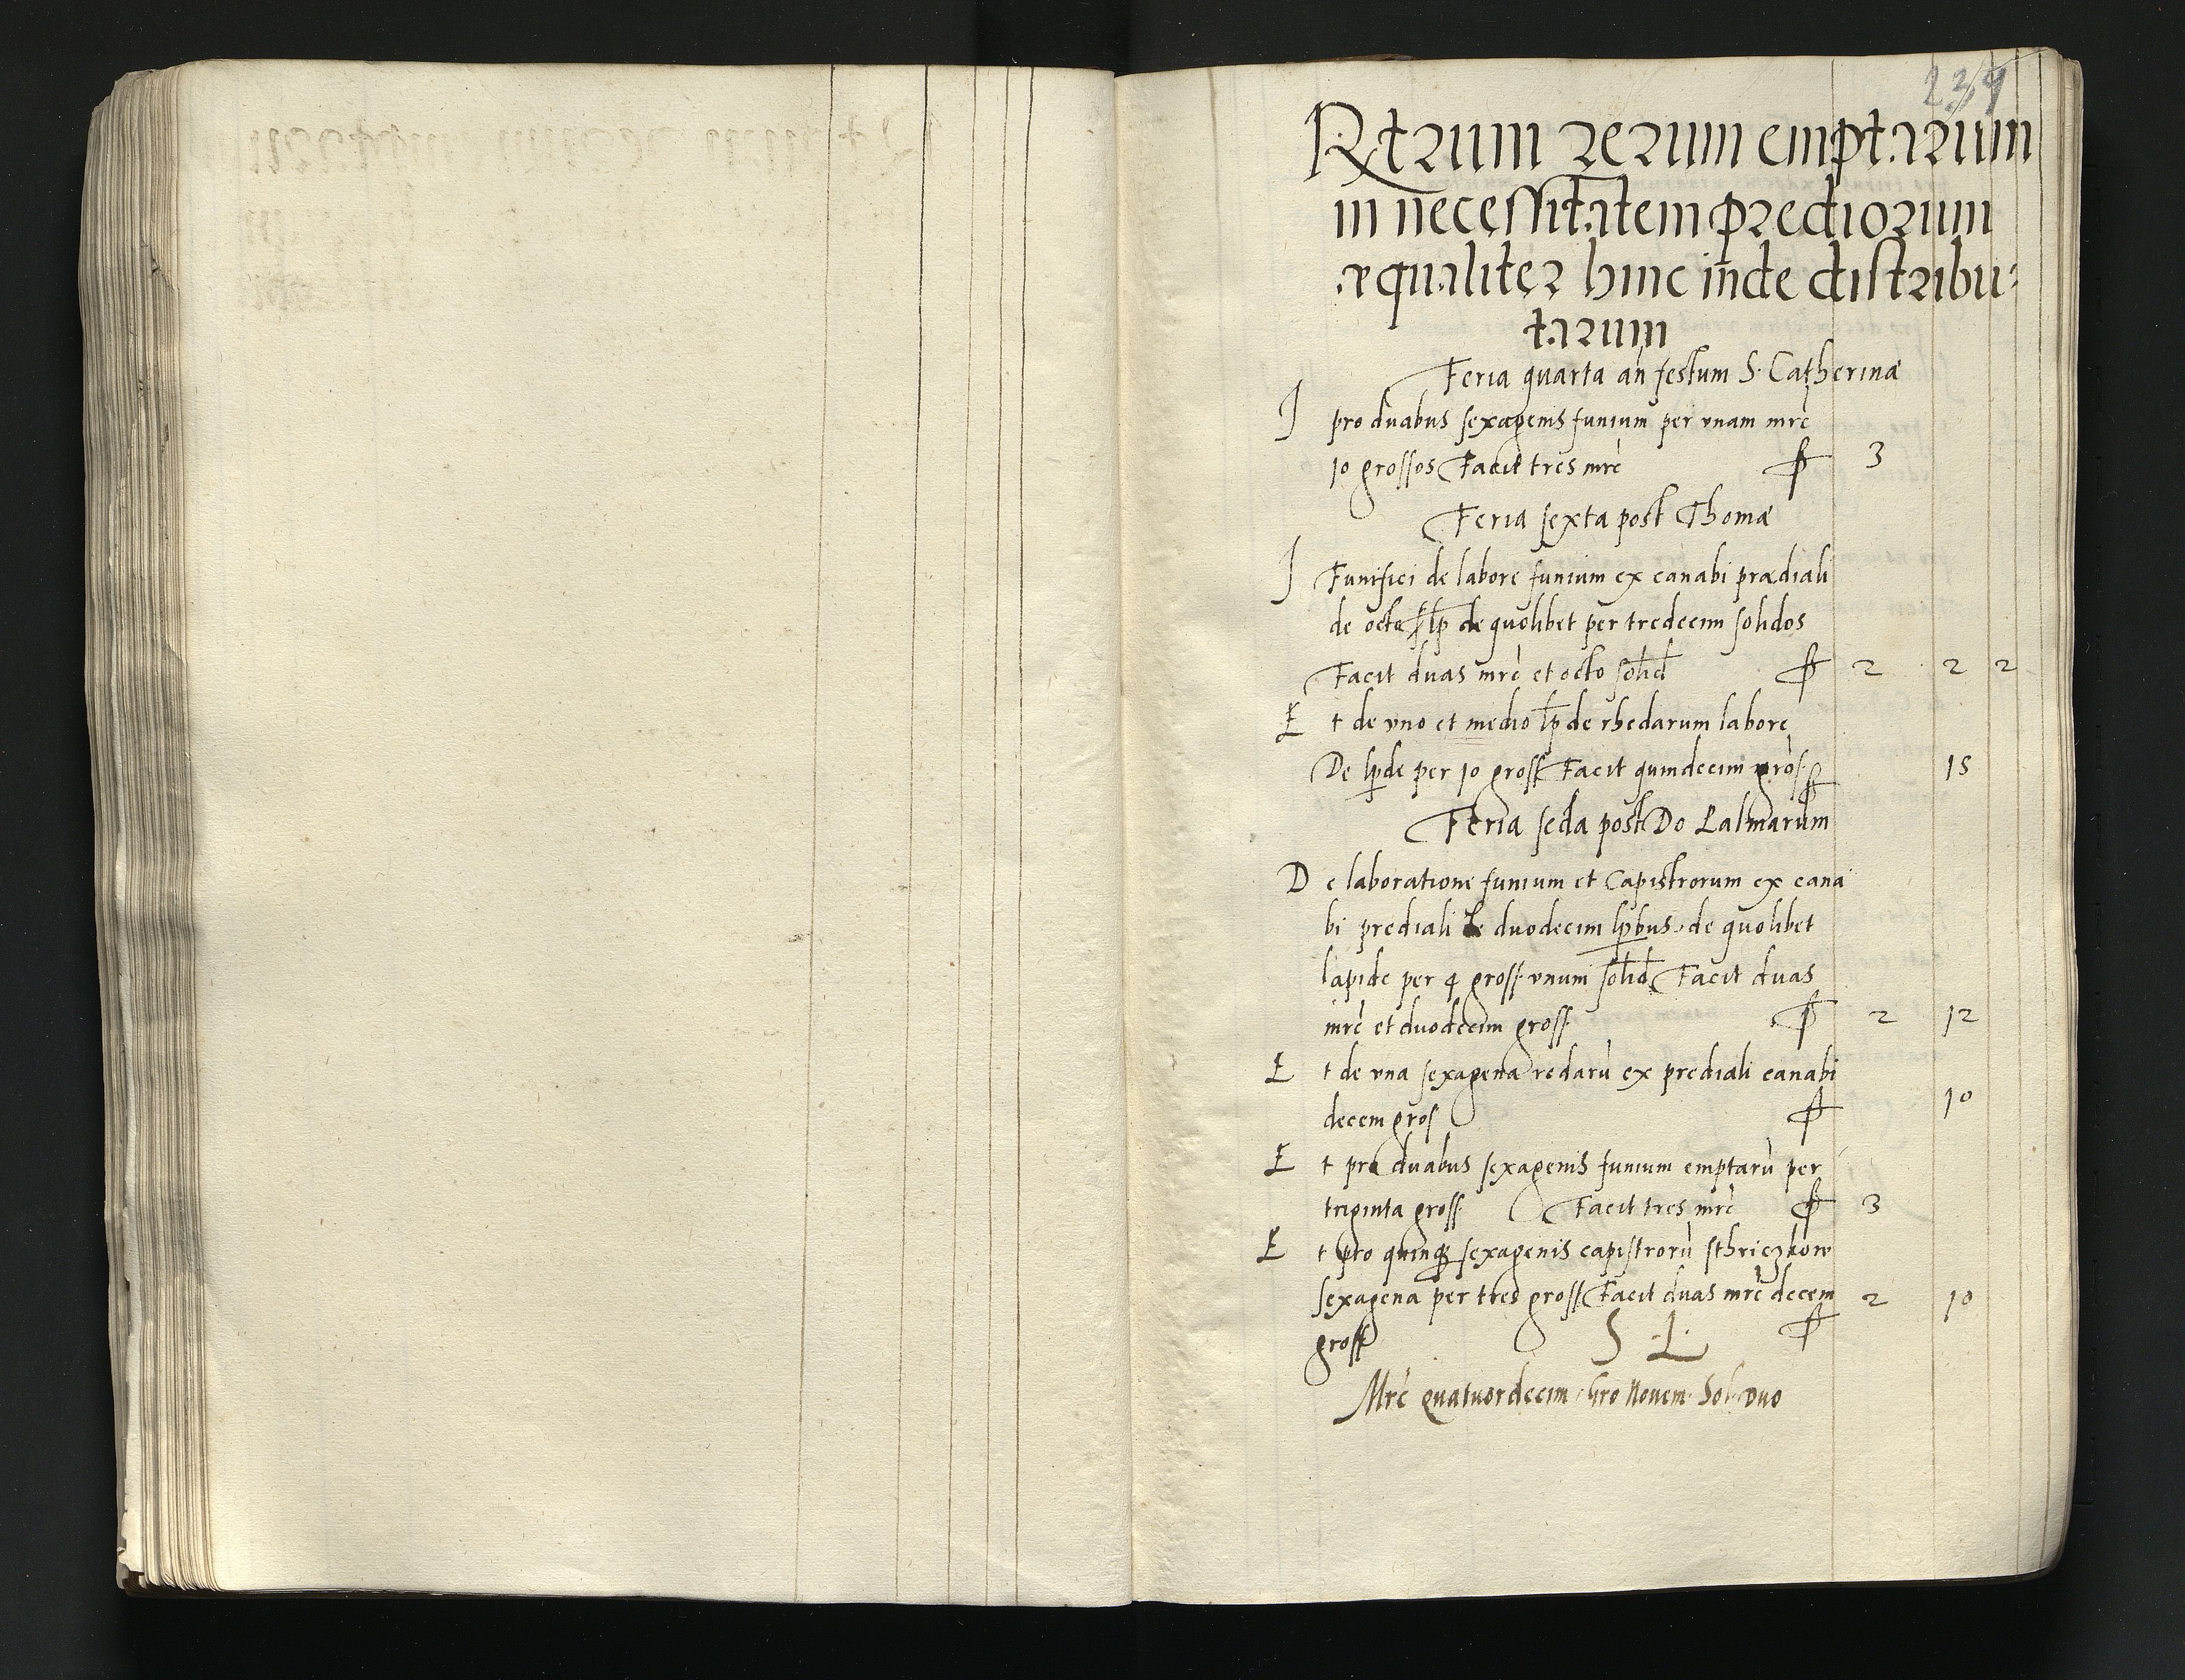 234
Rtrum rerum emptarum
in necessitatem prediorum
æqualiter hinc inde distribu-
tarum
Feria quarta an festum S. Catherinæ
J pro duabus sexagenis funium per vnam mrc
10 grossos Facit tres mrc 3
Feria sexta post Thomæ
J Funifici de labore funium ex canabi prædiali
de octo lp de quolibet per tredecim solidos
Facit duas mrc et octo solid 2 2 2
Et de vno et medio lpde rhedarum labore
De lpde per 10 gross Facit quindecim gros 15
Feria scda post Do Palmarum
De laboratione funium et Capistrorum ex cana
bi prediali de duodecim lpbus de quolibet
lapide per 4 gross vnum solid Facit duas
mrc et duodecim gross 2 12
Et de vna sexagena redarù ex prediali canabi
decem gros 10
Et pro duabus sexagenis funium emptarù per
triginta gross Facit tres mrc 3
Et pro quinq sexagenis capistrorù sthriczkow
sexagena per tres gross Facit duas mrc decem 2 10
gross S L
Mrc quatuordecim Gro Novem Sol duo